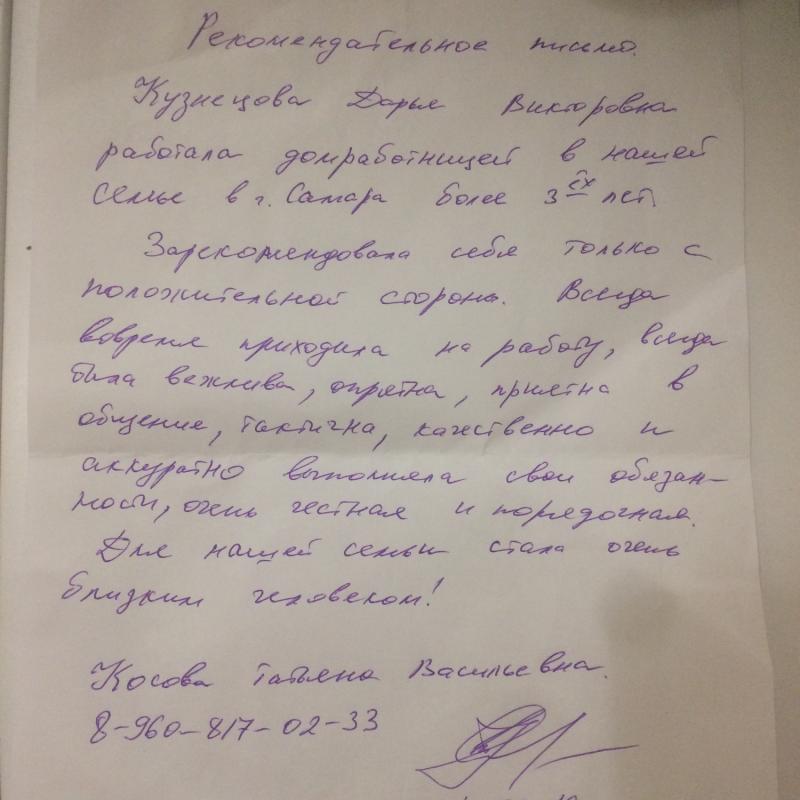 Рекомендательное письмо.
Кузнецова Дарья Викторовна
работала домработницей в нашей
семье в г. Самара более 3ех лет.
Зарекомендовала себя только с
положительной стороны. Всегда
вовремя приходила на работу, всегда
была вежлива, опрятна, приятна в
общение, тактична, качественно и
аккуратно выполняла свои обязан-
ности, очень честная и порядочная.
Для нашей семьи стала очень
близким человеком!
Косова Татьяна Васильевна.
8-960-817-02-33